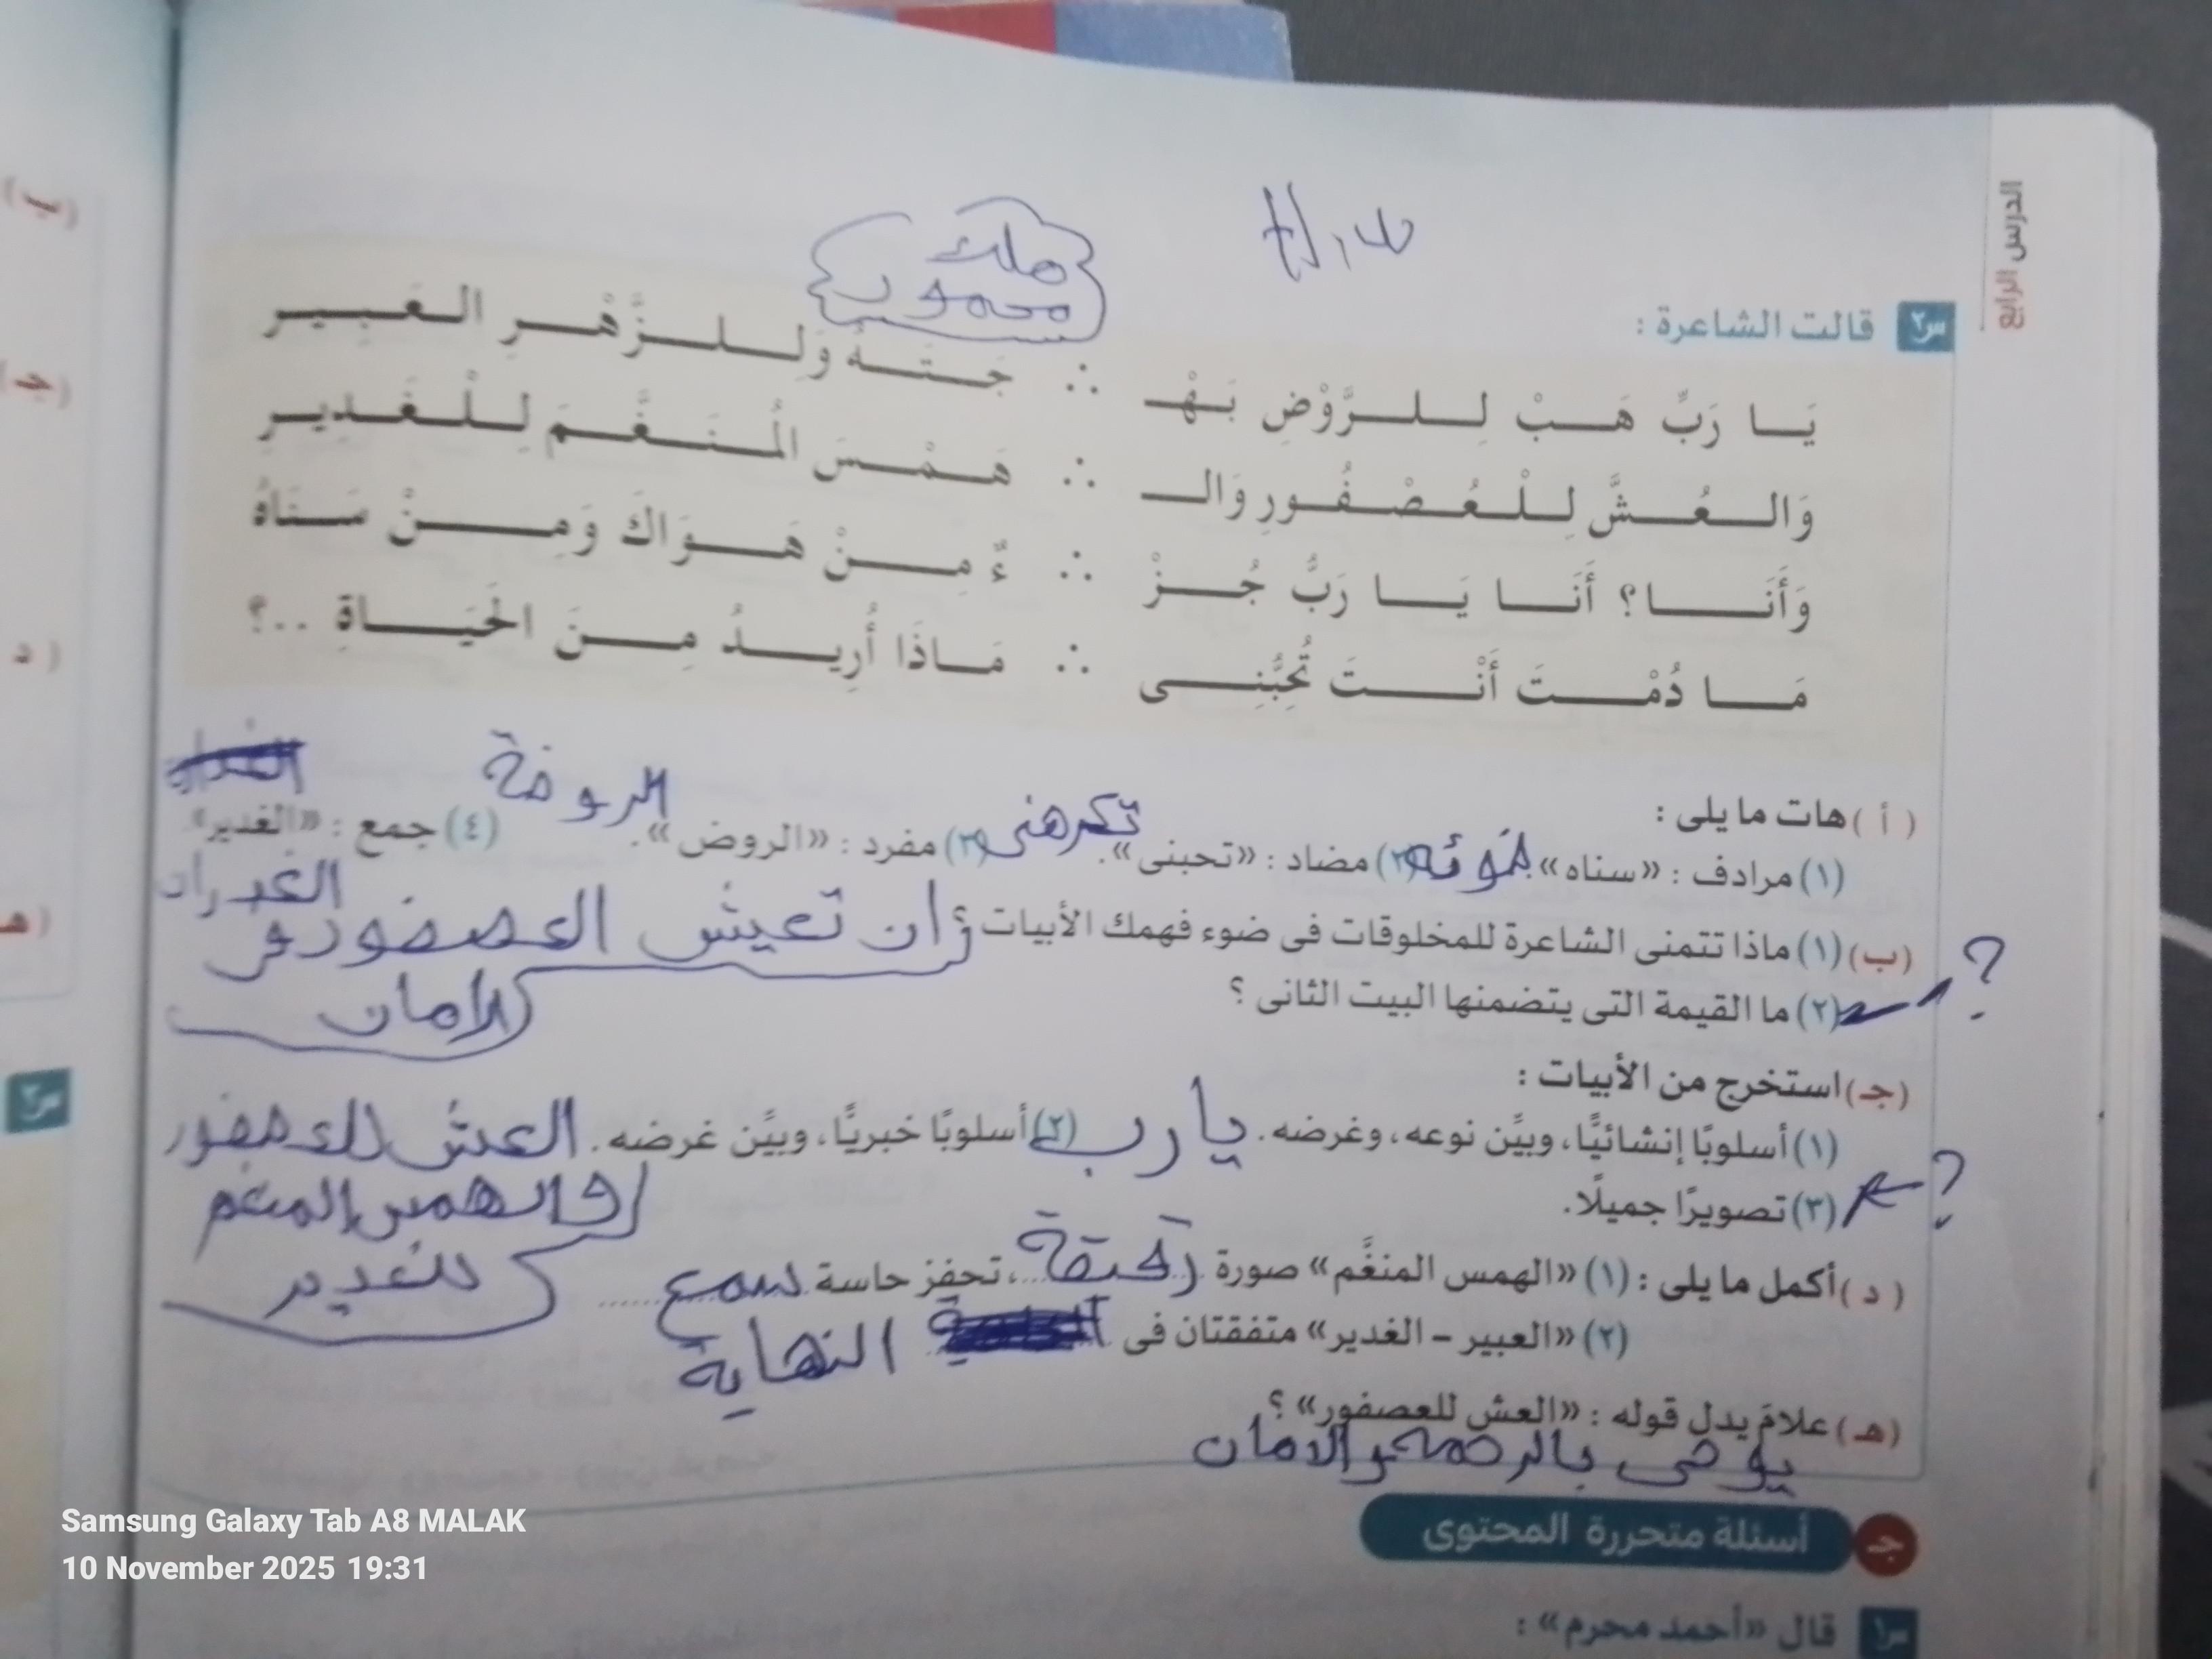 الدرس الرابع
ملك
محمود
س٢ قالت الشاعرة :
يَا رَبِّ هَبْ لِلرَّوْضِ بَهْـ ∴ جَتَهُ وَلِلزَّهْرِ العَبِير
وَالعُشَّ لِلْعُصْفُورِ وَالـ ∴ هَمْسَ الْمُنَغَّمَ لِلْغَدِير
وَأَنَا؟ أَنَا يَا رَبُّ جُزْ ∴ ءٌ مِنْ هَوَاكَ وَمِنْ سَنَاهُ
مَا دُمْتَ أَنْتَ تُحِبُّنِى ∴ مَاذَا أُرِيدُ مِنَ الْحَيَاةِ ..؟
(أ) هات ما يلى :
(١) مرادف : «سناه». ضوئه (٢) مضاد : «تحبنى». تكرهنى (٣) مفرد : «الروض». الروضة (٤) جمع : «الغدير».
الغدران
(ب) (١) ماذا تتمنى الشاعرة للمخلوقات فى ضوء فهمك الأبيات ؟ ان تعيش العصفور فى
الامان
(٢) ما القيمة التى يتضمنها البيت الثانى ؟
?
(جـ) استخرج من الأبيات :
(١) أسلوبًا إنشائيًّا، وبيِّن نوعه، وغرضه. يا رب (٢) أسلوبًا خبريًّا، وبيِّن غرضه. العش للعصفور
والهمس المنغم
للغدير
(٣) تصويرًا جميلًا.
?
(د) أكمل ما يلى : (١) «الهمس المنغَّم» صورة ........، تحفز حاسة سمع
(٢) «العبير – الغدير» متفقتان فى النهاية
(هـ) علامَ يدل قوله : «العش للعصفور» ؟
يوحى بالرحمة والامان
جـ أسئلة متحررة المحتوى
س١ قال «أحمد محرم» :
(ب)
(جـ)
(د)
(هـ)
س٣
Samsung Galaxy Tab A8 MALAK
10 November 2025 19:31